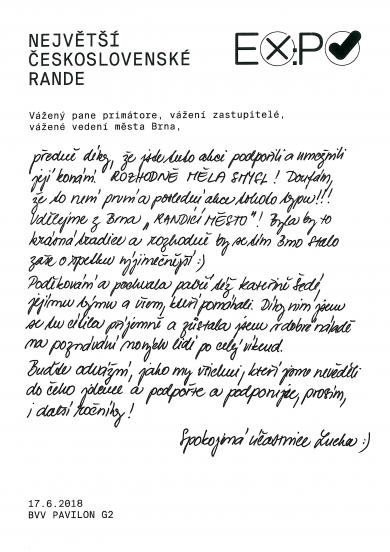 NEJVĚTŠÍ
ČESKOSLOVENSKÉ
RANDE
EX:PO
Vážený pane primátore, vážení zastupitelé,
vážené vedení města Brna,
předně díky, že jste tuto akci podpořili a umožnili
její konání. ROZHODNĚ MĚLA SMYSL! Doufám,
že to není první a poslední akce tohoto typu!!!
Udělejme z Brna "RANDÍCÍ MĚSTO"! Byla by to
krásná tradice a rozhodně by se tím Brno stalo
zase o trošku výjimečnější :)
Poděkování a pochvala patří též Kateřině Šedé,
jejímu týmu a všem, kteří pomáhali. Díky nim jsem
se tu cítila příjemně a zůstala jsem v dobré náladě
na poznávání nových lidí po celý víkend.
Buďte odvážní, jako my všichni, kteří jsme nevěděli
do čeho jdeme a podpořte a podporujte, prosím,
i další ročníky!
Spokojená účastnice Lucka :)
17.6.2018
BVV PAVILON G2